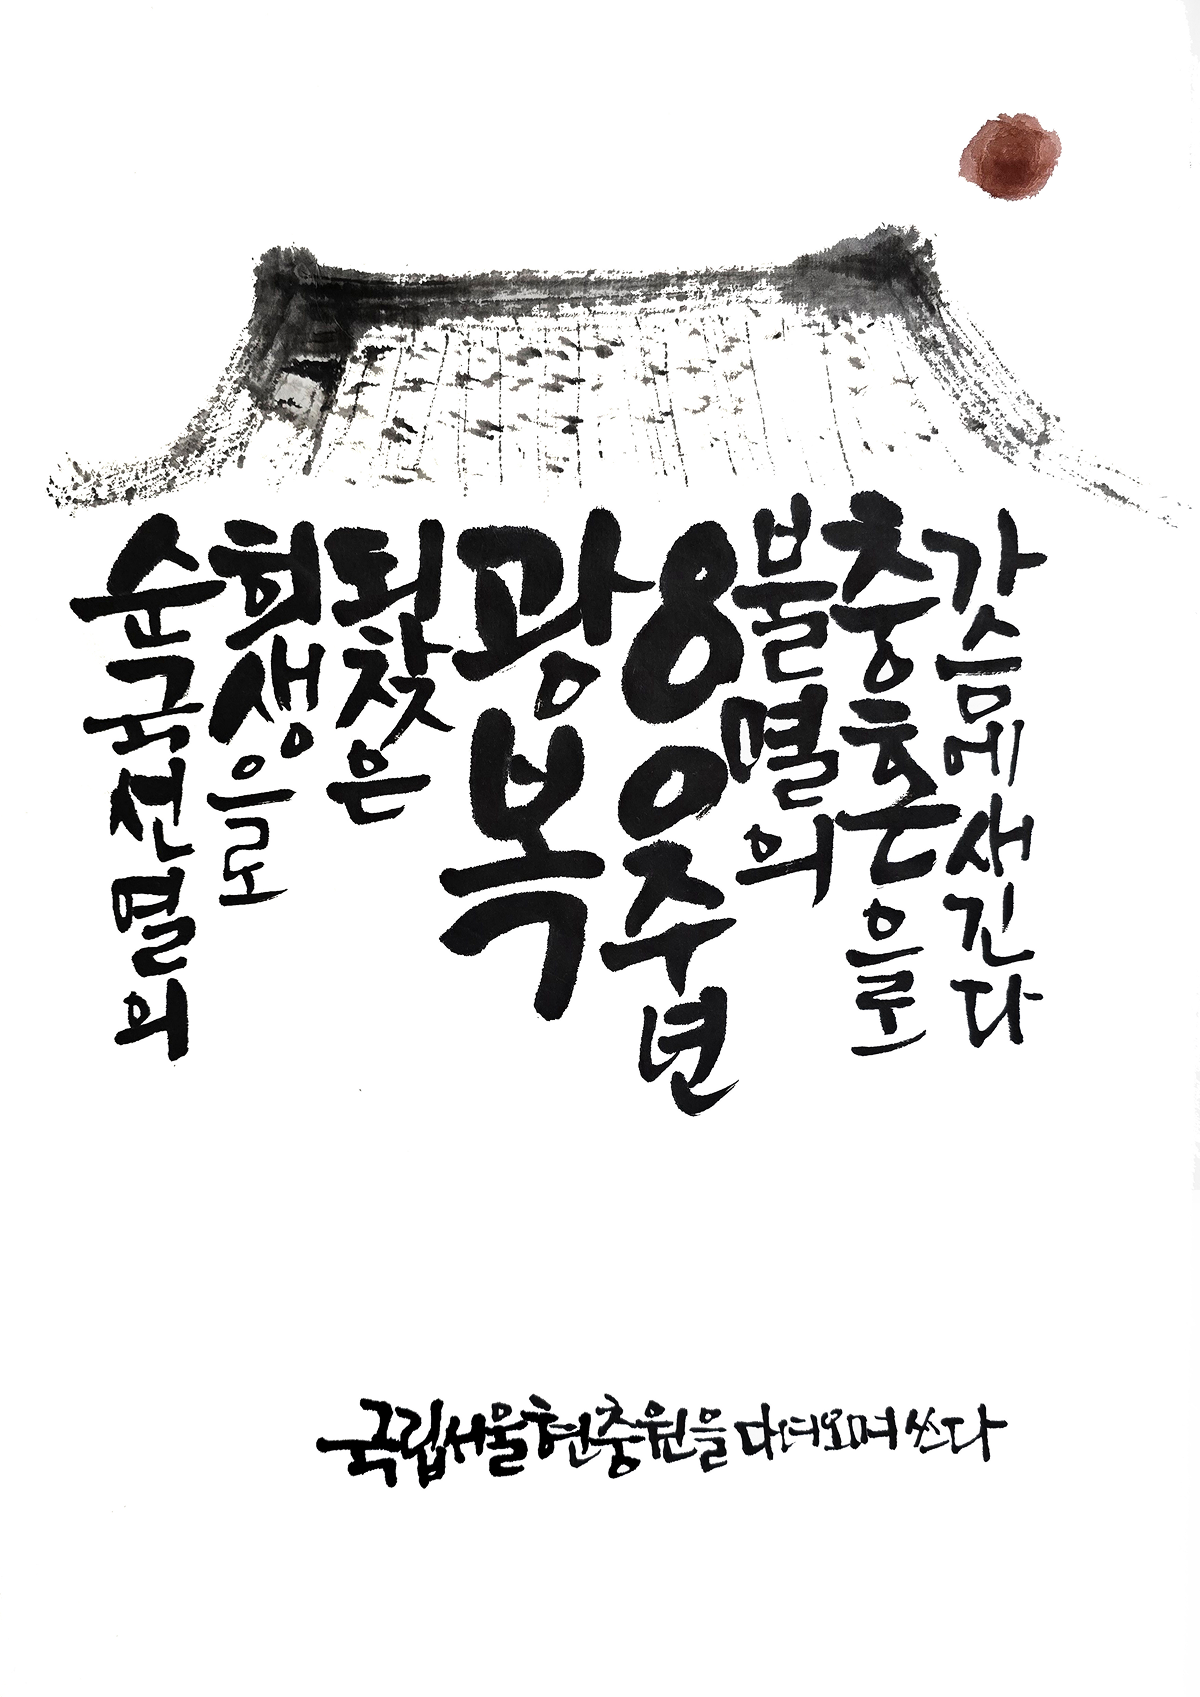 순국선열의
희생으로
되찾은
광복
80주년
불멸의
충혼으로
가슴에 새긴다
국립서울현충원을 다녀오며 쓰다